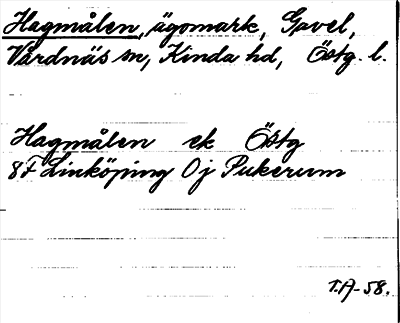 Hagmålen, ägomark, Gavel,
Vårdnäs sn, Kinda hd, Östg. l.
Hagmålen ek Östg
8F Linköping Oj Pukerum
T.A-58.